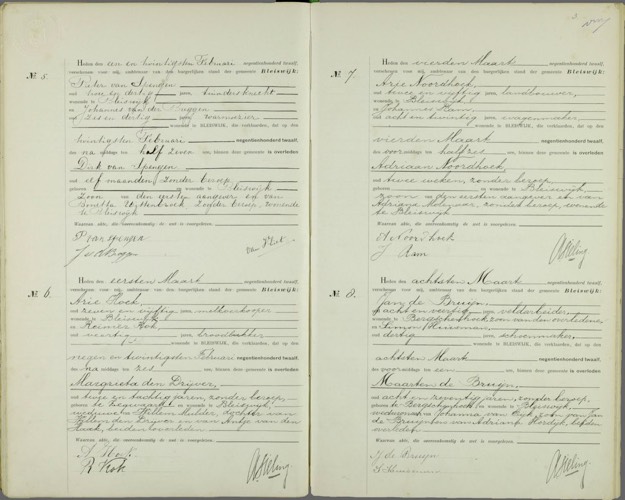 Nº 5.
Heden den een en twintigsten Februari negentienhonderd twaalf,
verschenen voor mij, ambtenaar van den burgerlijken stand der gemeente Bleiswijk:
Pieter van Spengen
oud twee en dertig jaren,
wonende te Bleiswijk
en Johannes van der Burggen
oud zes en dertig jaren,
wonende te BLEISWIJK, die verklaarden, dat op den
twintigsten Februari negentienhonderd twaalf,
des na middags te half zeven ure, binnen deze gemeente is overleden
Dirk van Spengen
oud elf maanden, zonder beroep,
en wonende te Bleiswijk
zoon van den eersten aangever en van
zonder beroep, wonende
te Bleiswijk
Waarvan akte, die overeenkomstig de wet is voorgelezen.
P van Spengen
Nº 6.
Heden den eersten Maart negentienhonderd twaalf,
verschenen voor mij, ambtenaar van den burgerlijken stand der gemeente Bleiswijk:
Arie Hoek,
oud zeven en vijftig jaren,
wonende te Bleiswijk
en Reinier Kok,
oud veertig jaren, broodbakker
wonende te BLEISWIJK, die verklaarden, dat op den
negen en twintigsten Februari negentienhonderd twaalf,
des na middags te zes ure, binnen deze gemeente is overleden
Margrieta den Drijver,
oud twee en tachtig jaren, zonder beroep,
wonende te Bleiswijk,
weduwe van Willem Mulder, dochter van
Willem den Drijver en van Antje van den
Hoek, beiden overleden
Waarvan akte, die overeenkomstig de wet is voorgelezen.
A. Hoek
R Kok
Nº 7.
Heden den vierden Maart negentienhonderd twaalf,
verschenen voor mij, ambtenaar van den burgerlijken stand der gemeente Bleiswijk:
Arie Noordhoek,
oud twee en vijftig jaren, landbouwer,
wonende te Bleiswijk
en Johannes Ram,
oud acht en twintig jaren, wagenmaker,
wonende te BLEISWIJK, die verklaarden, dat op den
vierden Maart negentienhonderd twaalf,
des voormiddags te half zes ure, binnen deze gemeente is overleden
Adriaan Noordhoek,
oud twee weken, zonder beroep,
en wonende te Bleiswijk
zoon van den eersten aangever en van
Adriana Molenaar, zonder beroep, wonende
te Bleiswijk
Waarvan akte, die overeenkomstig de wet is voorgelezen.
A Noordhoek
J Ram
Nº 8.
Heden den achtsten Maart negentienhonderd twaalf,
verschenen voor mij, ambtenaar van den burgerlijken stand der gemeente Bleiswijk:
Jan de Bruijn,
oud acht en veertig jaren, veldarbeider,
wonende te Bergschenhoek, zoon van den overledene,
en Simon Huisman,
oud dertig jaren, schoenmaker,
wonende te BLEISWIJK, die verklaarden, dat op den
achtsten Maart negentienhonderd twaalf,
des voormiddags te een ure, binnen deze gemeente is overleden
Maarten de Bruijn,
oud acht en zeventig jaren, zonder beroep,
wonende te Bleiswijk,
weduwnaar van Johanna van Eijk, zoon van Jan
de Bruijn en van Adriana Hordijk, beiden
overleden
Waarvan akte, die overeenkomstig de wet is voorgelezen.
J de Bruijn
S Huisman